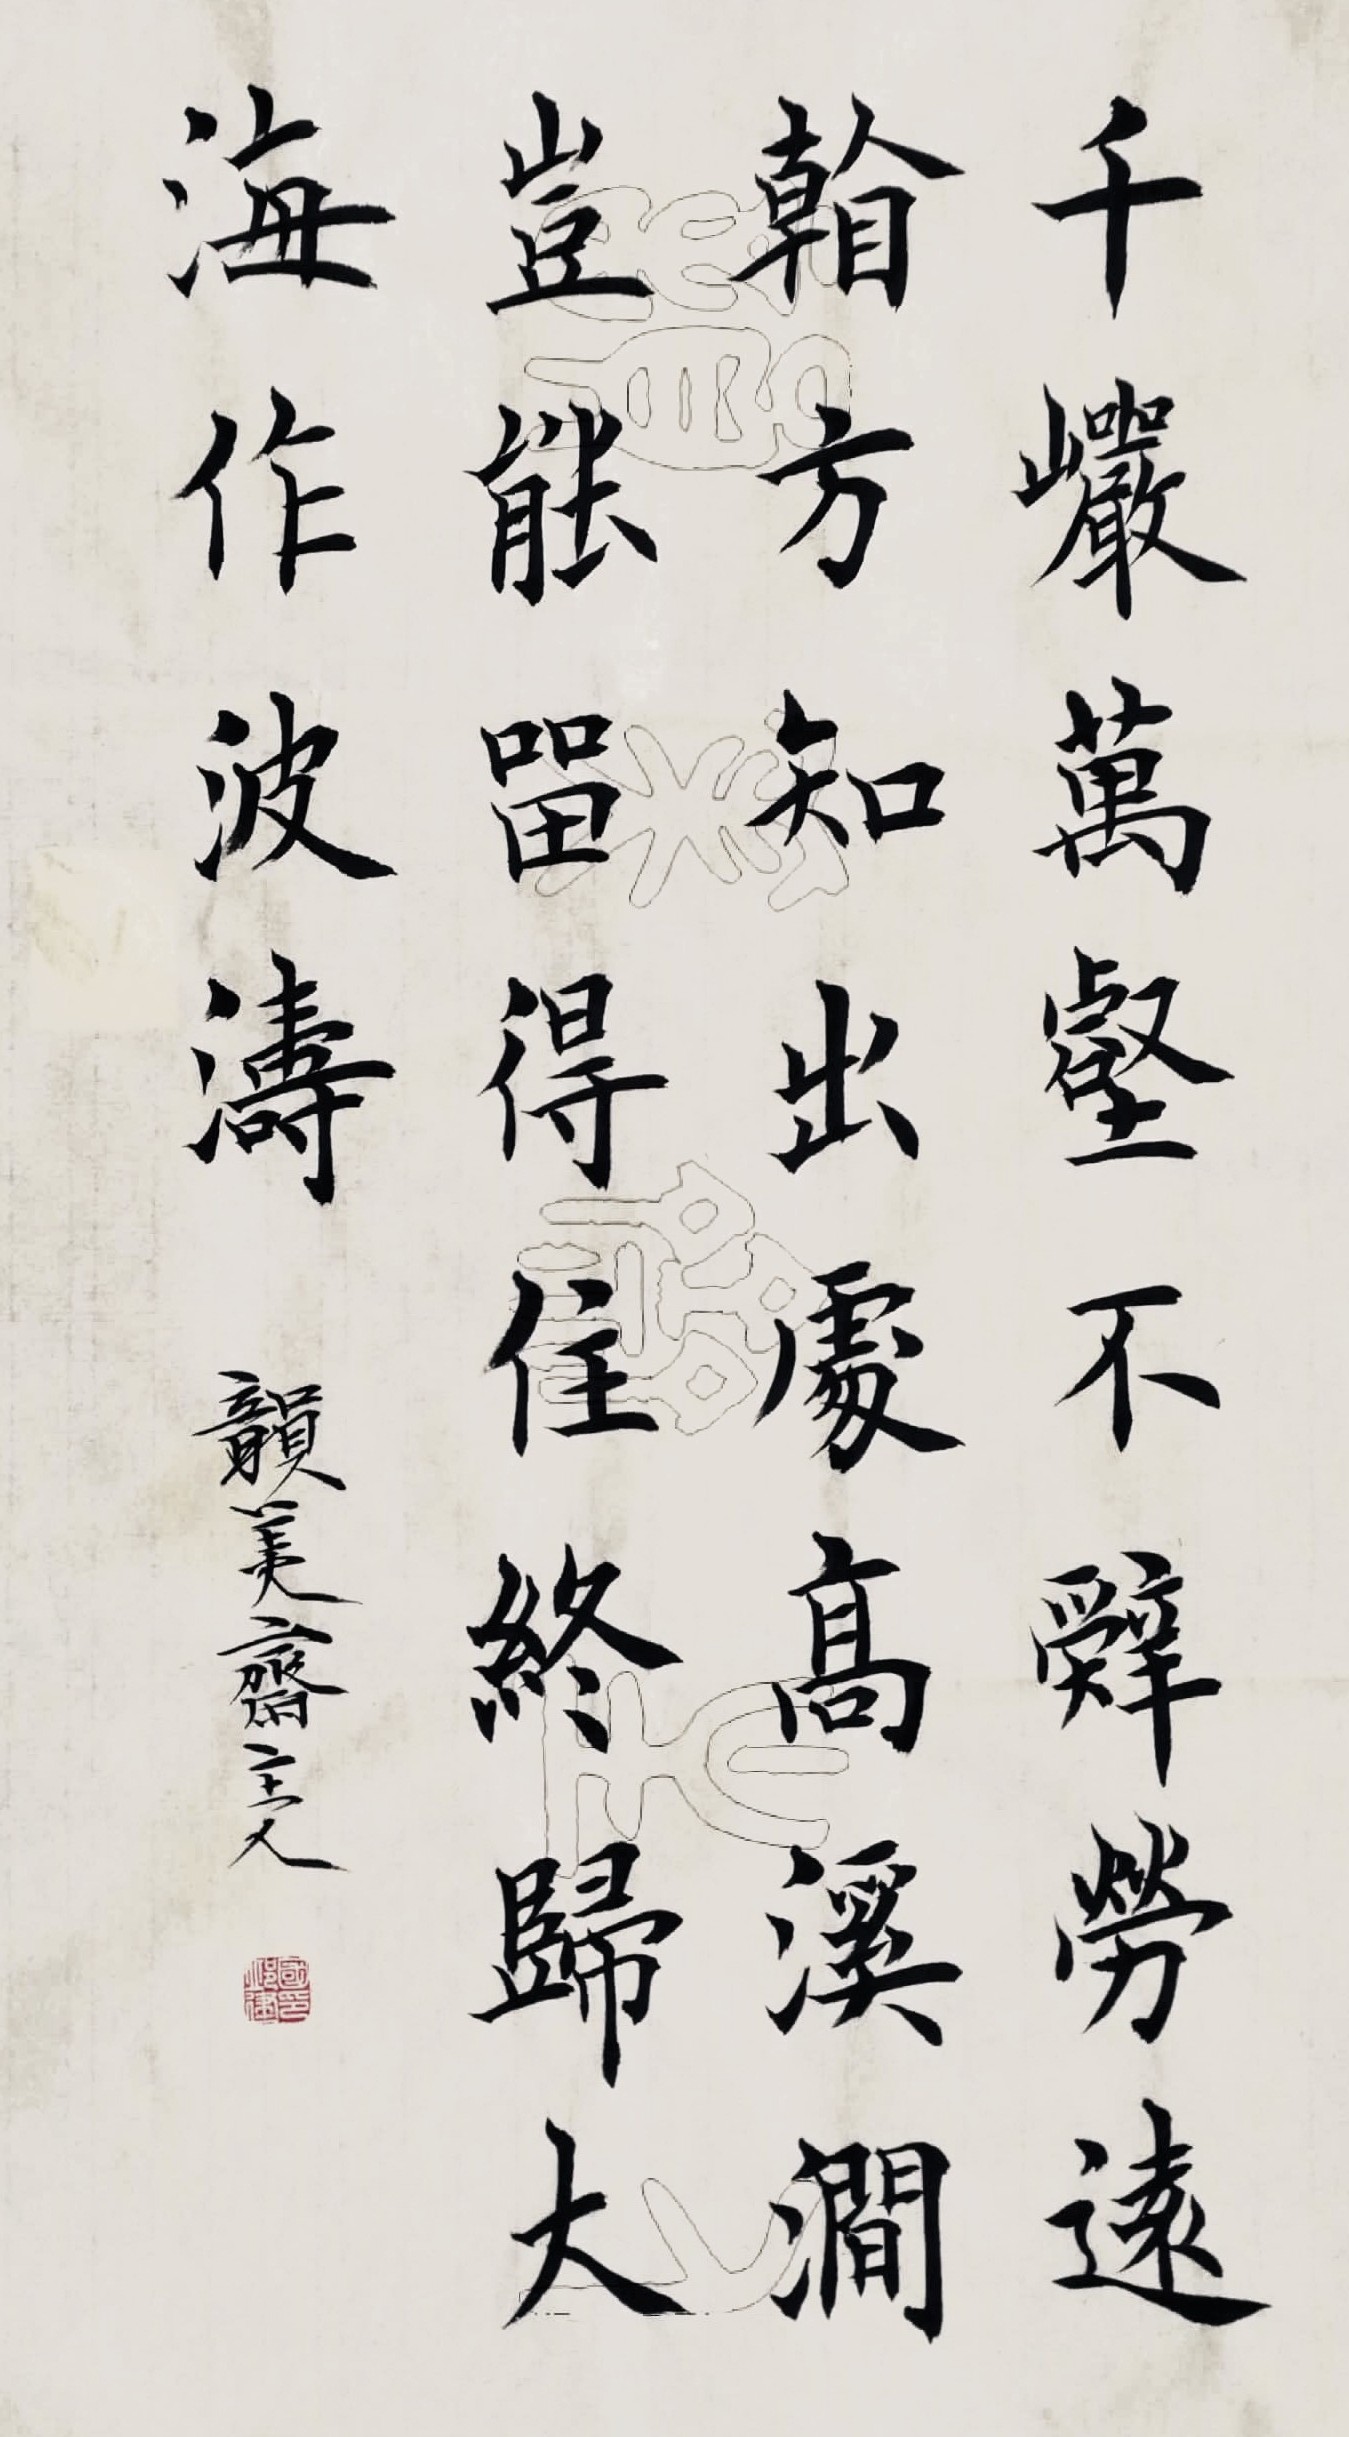 千巗萬壑不辭勞遠
看方知出處高溪澗
豈能㽞得住終歸大
海作波濤
韻美齋主人